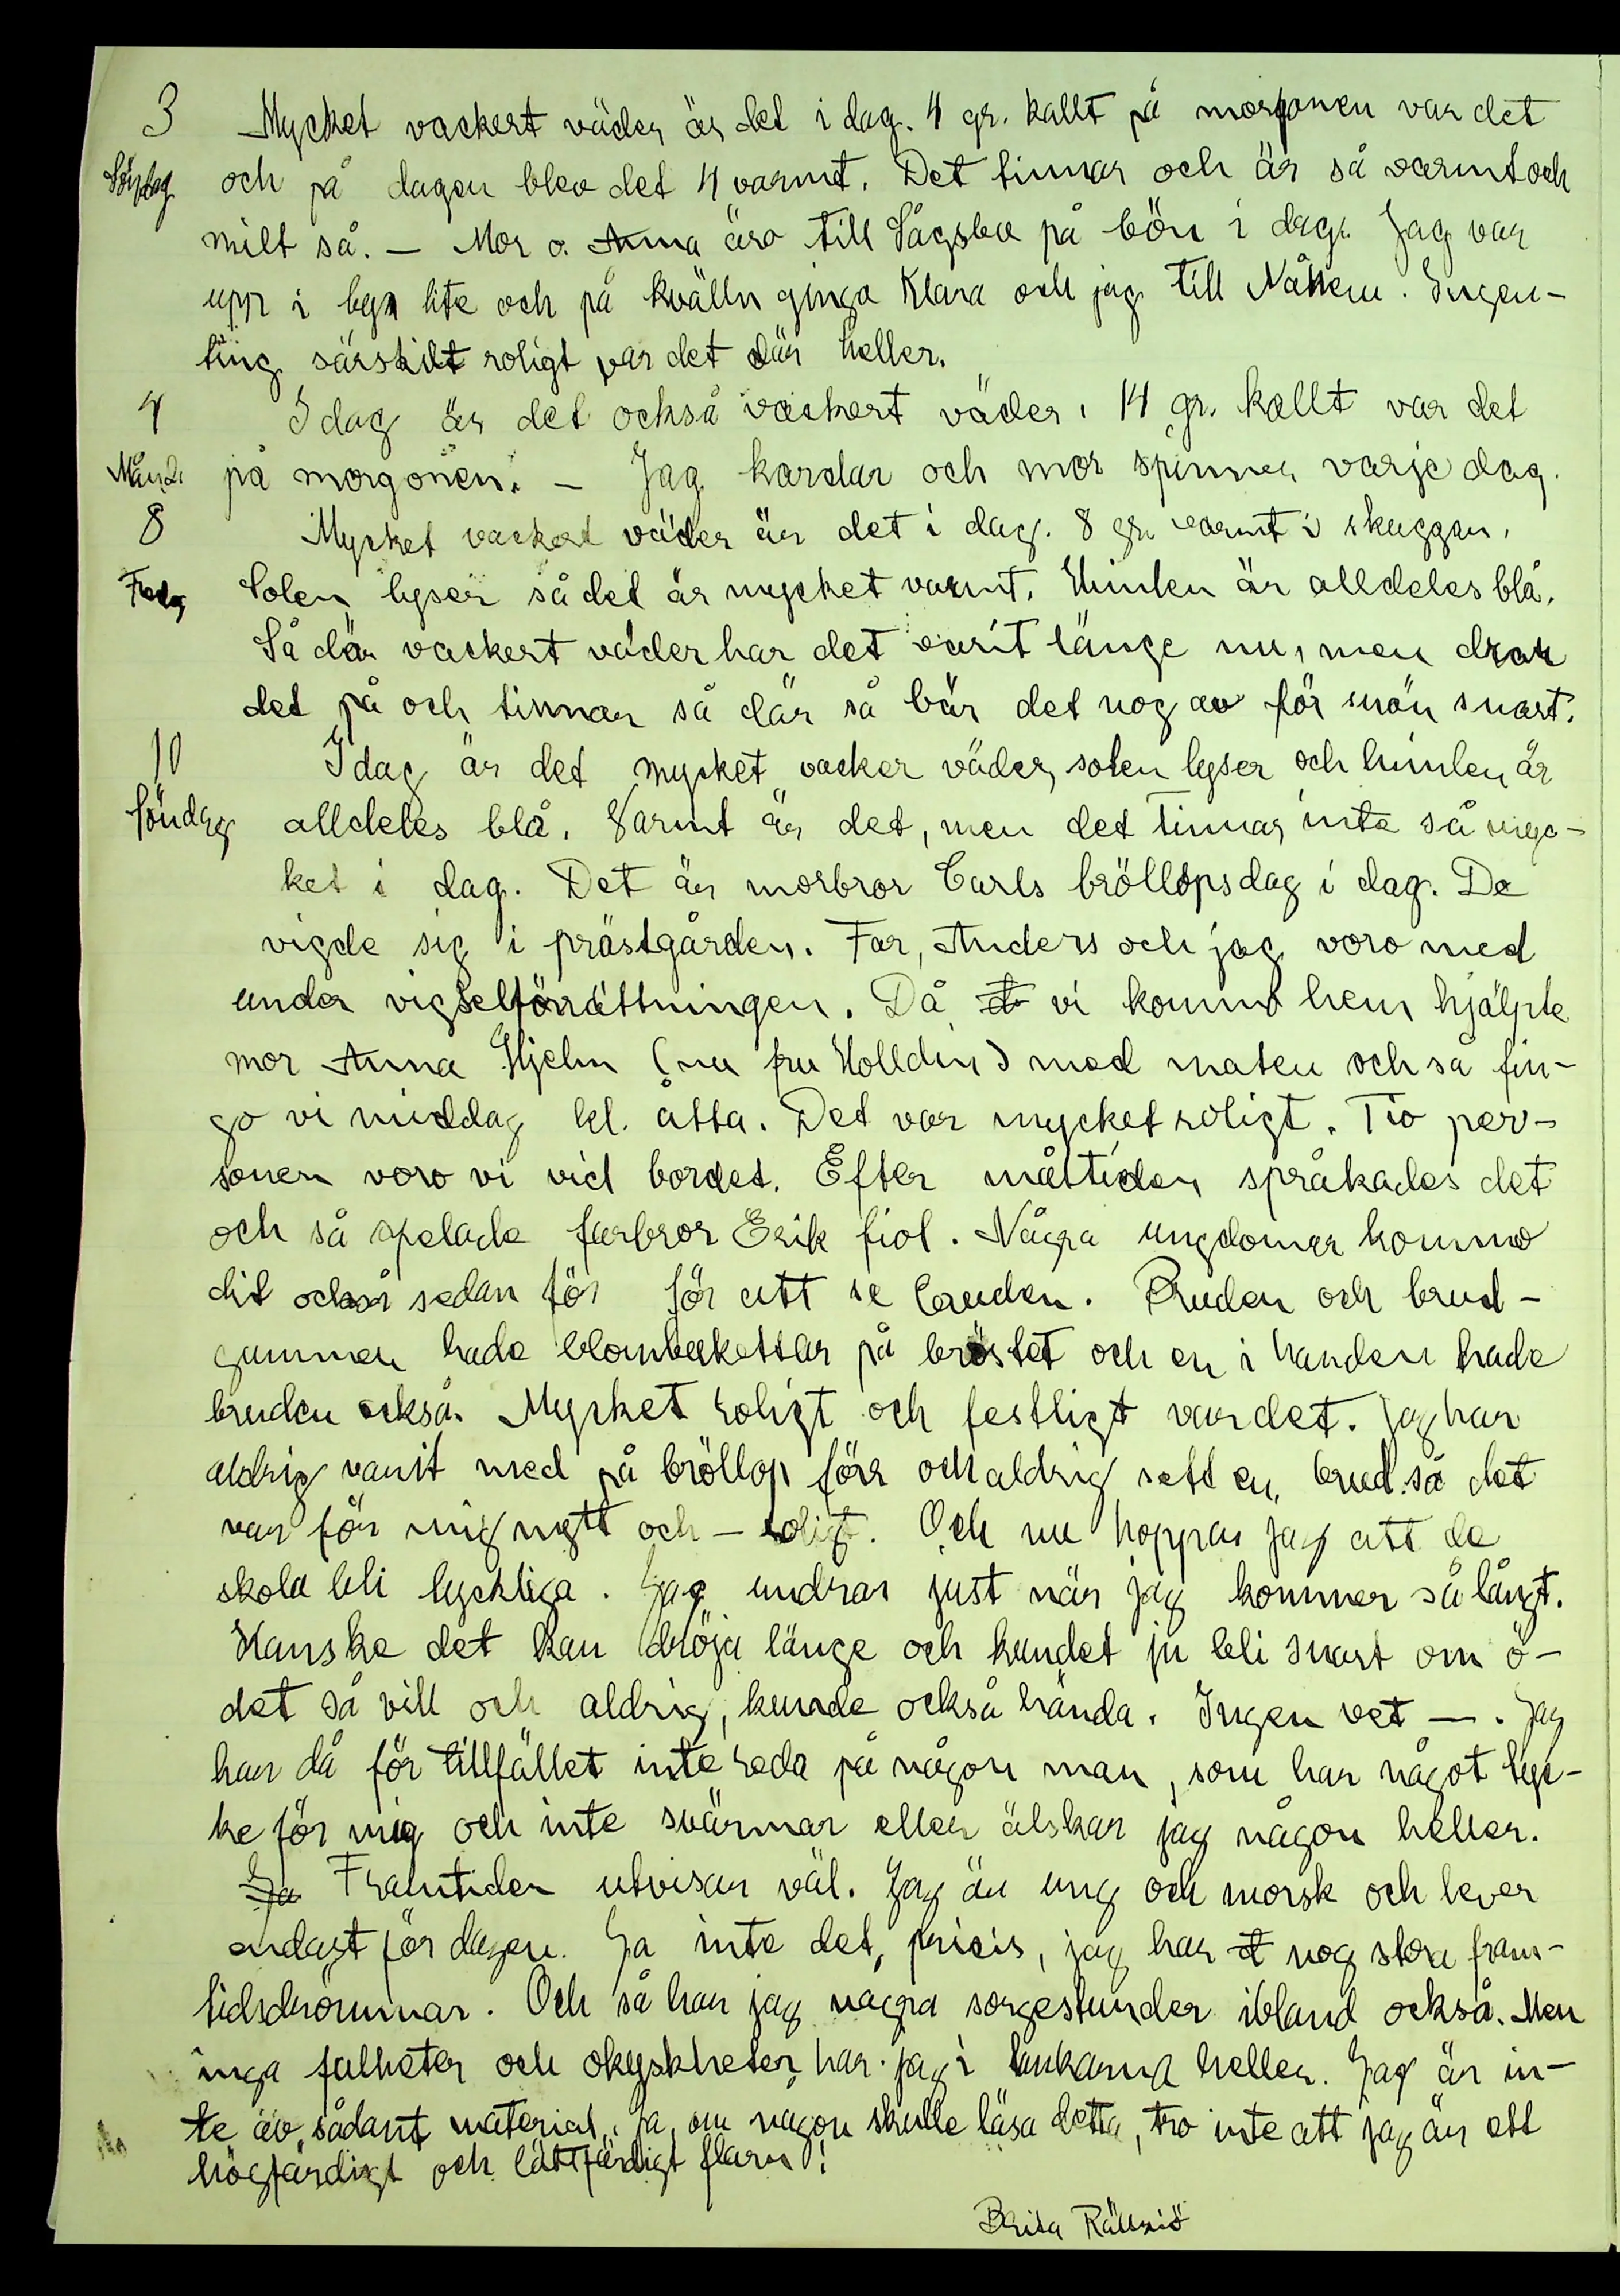 3 Mycket vackert väder är det i dag. 4 gr. kallt på morgonen var det
Söndag och på dagen blev det 4 varmt. Det tinnar och är så varmt och
milt så. – Mor o. Anna äro till Sågsbo på bön i dag. Jag var
upp i byn lite och på kvälln gingo Klara och jag till Nåkem. Ingen-
ting särskilt roligt var det där heller.
4 Idag är det också vackert väder. 14 gr. kallt var det
Månd. på morgonen. – Jag kardar och mor spinner varje dag.
8 Mycket vackert väder är det i dag. 8 gr. varmt i skuggan.
Fredag Solen lyser så det är mycket varmt. Himlen är alldeles blå.
Så där vackert väder har det varit länge nu, men drar
det på och tinnar så där så bär det nog av för snön snart.
10 Idag är det mycket vacker väder, solen lyser och himlen är
Söndag alldeles blå. Varmt är det, men det tinnar inte så myc-
ket i dag. Det är morbror Carls bröllopsdag i dag. De
vigde sig i prästgården. Far, Anders och jag voro med
under vigselförrättningen. Då vi kommo hem hjälpte
mor Anna Hjelm (nu fru Holldin) med maten och så fin-
go vi middag kl. åtta. Det var mycket roligt. Tio per-
soner voro vi vid bordet. Efter måltiden språkades det
och så spelade farbror Erik fiol. Några ungdomar kommo
dit också sedan för för att se bruden. Bruden och brud-
gummen hade blombukettar på bröstet och en i handen hade
bruden också. Mycket roligt och festligt var det. Jag har
aldrig varit med på bröllop förr och aldrig sett en brud så det
var för mig nytt och – roligt. Och nu hoppas jag att de
skola bli lyckliga. Jag undrar just när jag kommer så långt.
Kanske det kan dröja länge och kundet ju bli snart om ö-
det så vill och aldrig, kunde också hända. Ingen vet –. Jag
har då för tillfället inte reda på någon man, som har något tyc-
ke för mig och inte svärmar eller älskar jag någon heller.
Ja Framtiden utvisar väl. Jag är ung och morsk och lever
endast för dagen. Ja inte det, pricis, jag har nog stora fram-
tidsdrömmar. Och så har jag några sorgestunder ibland också. Men
inga fulheter och okyskheter har jag i tankarna heller. Jag är in-
te av sådant material. Ja, om någon skulle läsa detta, tro inte att jag är ett
högfärdigt och lättfärdigt flarn!
Brita Rällsjö